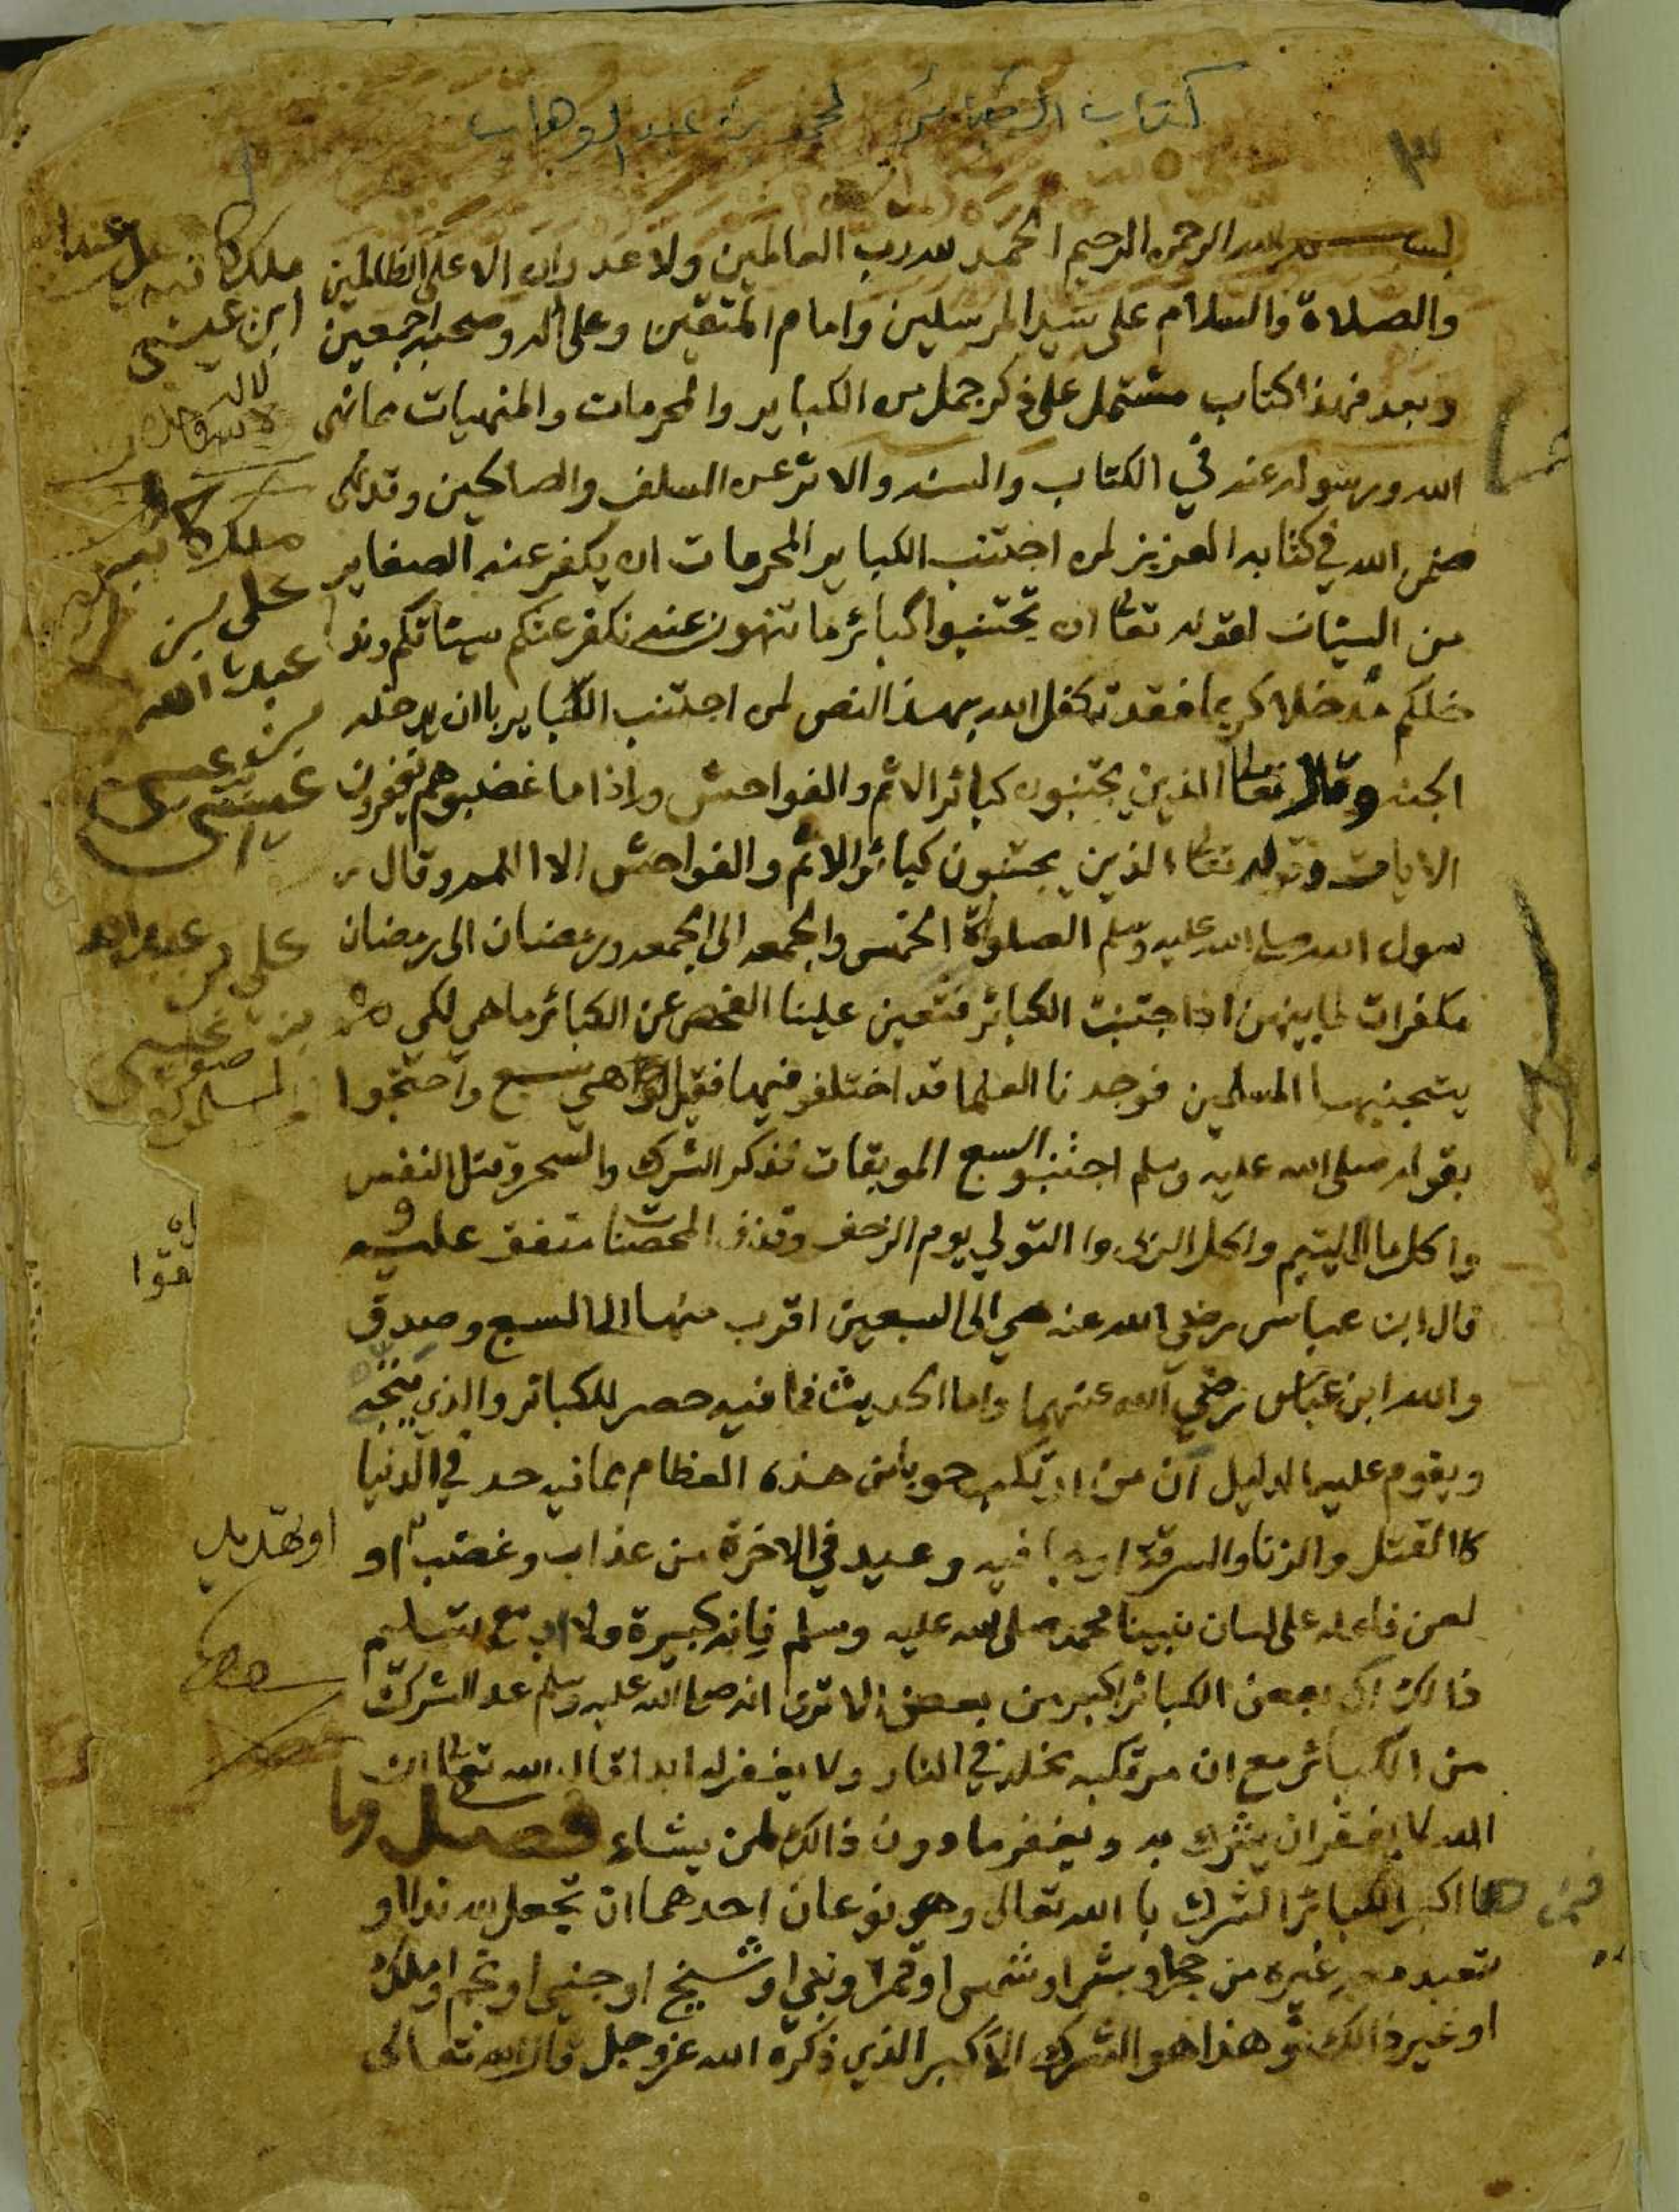 كتاب الكبائر لمحمد بن عبد الوهاب
٣
بسم الله الرحمن الرحيم الحمد لله رب العالمين ولا عدوان الا على الظالمين
والصلاة والسلام على سيد المرسلين وامام المتقين وعلى اله وصحبه اجمعين
وبعد فهذا كتاب مشتمل على ذكر جمل من الكباير والمحرمات والمنهيات مما نهى
الله ورسوله عنه في الكتاب والسنه والاثر عن السلف والصالحين وقد
ضمن الله في كتابه العزيز لمن اجتنب الكباير المحرمات ان يكفر عنه الصغاير
من السيئات لقوله تعالى ان تجتنبوا كبائر ما تنهون عنه نكفر عنكم سيئاتكم وند
خلكم مدخلا كريما فقد تكفل الله بهذا النص لمن اجتنب الكباير باان يدخله
الجنه وقال تعالى الذين يجتنبون كبائر الاثم والفواحش واذا ما غضبو هم يغفرون
الايات وقوله تعالى الذين يجتنبون كبائر الاثم والفواحش الا اللمم وقال ر
سول الله صلى الله عليه وسلم الصلواة الخمس والجمعه الى الجمعه ورمضان الى رمضان
مكفرات لما بينهن اذا اجتنبت الكبائر فتعين علينا الفحص عن الكبائر ما هي لكى
يتجنبها المسلمين فوجدنا العلما قد اختلفو فيها فقيل هي سبع واحتجوا
بقوله صلى الله عليه وسلم اجتنبو السبع الموبقات فذكر الشرك والسحر وقتل النفس
واكل مال اليتيم واكل الربى وا التولي يوم الزحف وقذف المحصنات متفق عليه
قال ابن عباس رضي الله عنه هي الى السبعين اقرب منها الى السبع وصدق
والله ابن عباس رضي الله عنهما واما الحديث فما فيه حصر للكبائر والذي يتجه
ويقوم عليه الدليل ان من ارتكب حوبا من هذه العظام مما فيه حد في الدنيا
كا القتل والزنا والسرقة او جا فيه وعيد في الاخرة من عذاب وغضب او
لعن فاعله على لسان نبينا محمد صلى الله عليه وسلم فانه كبيرة ولا بد مع تسليم
ذالك ان بعض الكبائر اكبر من بعض الا ترى انه صلى الله عليه وسلم عد الشرك
من الكبائر مع ان مرتكبه مخلد في النار ولا يغفر له ابدا قال الله تعالى ان
الله لا يغفر ان يشرك به ويغفر ما دون ذالك لمن يشاء فصل وا
ما اكبر الكبائر الشرك با الله تعالى وهو نوعان احدهما ان تجعل لله ندا او
تعبد معه غيره من حجر او بشر او شمس او قمر او نبي او شيخ او جني او نجم او ملك
او غير ذالك وهذا هو الشرك الاكبر الذي ذكره الله عز وجل قال الله تعالى
ابن عيسى
على بن
عبد الله
بن عيسى
على بن عبد الله
بن عيسى
او تهديد